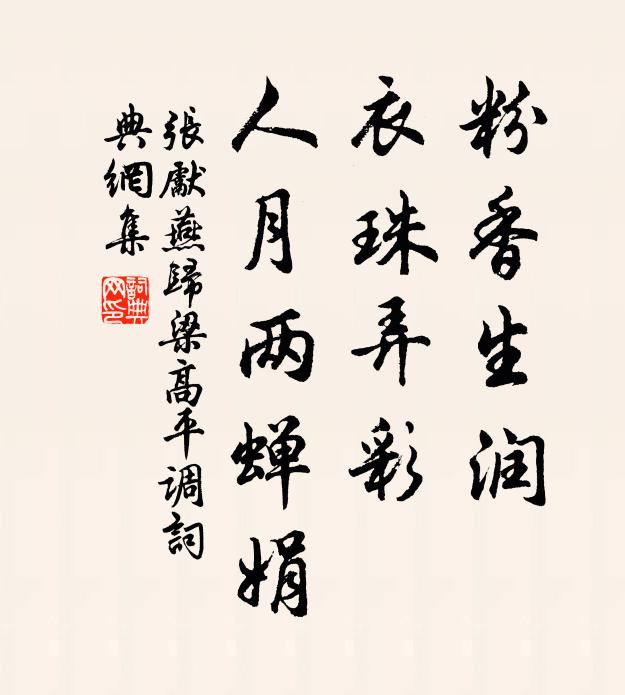 粉香生润
衣珠弄彩
人月两蝉娟
張獻燕歸梁高平调詞
典網集
詞典网印